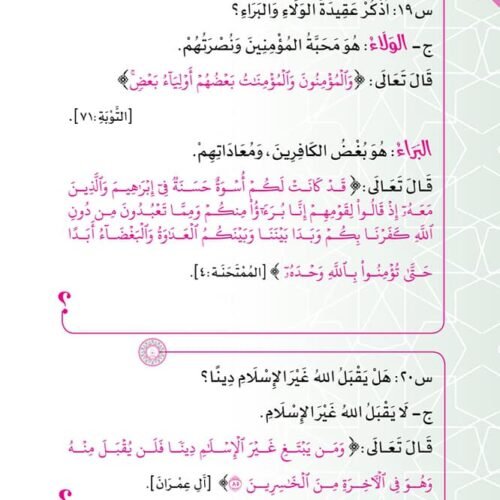 س١٩: اذْكُرْ عَقِيدَةَ الوَلَاءِ وَالبَرَاءِ؟
ج- الوَلَاءُ: هُوَ مَحَبَّةُ المُؤْمِنِينَ وَنُصْرَتُهُمْ.
قَالَ تَعَالَى: ﴿وَٱلْمُؤْمِنُونَ وَٱلْمُؤْمِنَٰتُ بَعْضُهُمْ أَوْلِيَآءُ بَعْضٖۚ﴾
[التَّوْبَةِ:٧١].
البَرَاءُ: هُوَ بُغْضُ الكَافِرِينَ، وَمُعَادَاتِهِمْ.
قَالَ تَعَالَى: ﴿قَدْ كَانَتْ لَكُمْ أُسْوَةٌ حَسَنَةٞ فِيٓ إِبْرَٰهِيمَ وَٱلَّذِينَ
مَعَهُۥٓ إِذْ قَالُواْ لِقَوْمِهِمْ إِنَّا بُرَءَٰٓؤُاْ مِنكُمْ وَمِمَّا تَعْبُدُونَ مِن دُونِ
ٱللَّهِ كَفَرْنَا بِكُمْ وَبَدَا بَيْنَنَا وَبَيْنَكُمُ ٱلْعَدَٰوَةُ وَٱلْبَغْضَآءُ أَبَدًا
حَتَّىٰ تُؤْمِنُواْ بِٱللَّهِ وَحْدَهُۥٓ﴾ [المُمْتَحَنَة:٤].
س٢٠: هَلْ يَقْبَلُ اللهُ غَيْرَ الإِسْلَامِ دِينًا؟
ج- لَا يَقْبَلُ اللهُ غَيْرَ الإِسْلَامِ.
قَالَ تَعَالَى: ﴿وَمَن يَبْتَغِ غَيْرَ ٱلْإِسْلَٰمِ دِينٗا فَلَن يُقْبَلَ مِنْهُ
وَهُوَ فِي ٱلْأٓخِرَةِ مِنَ ٱلْخَٰسِرِينَ ٨٥﴾ [آلِ عِمْرَانَ].